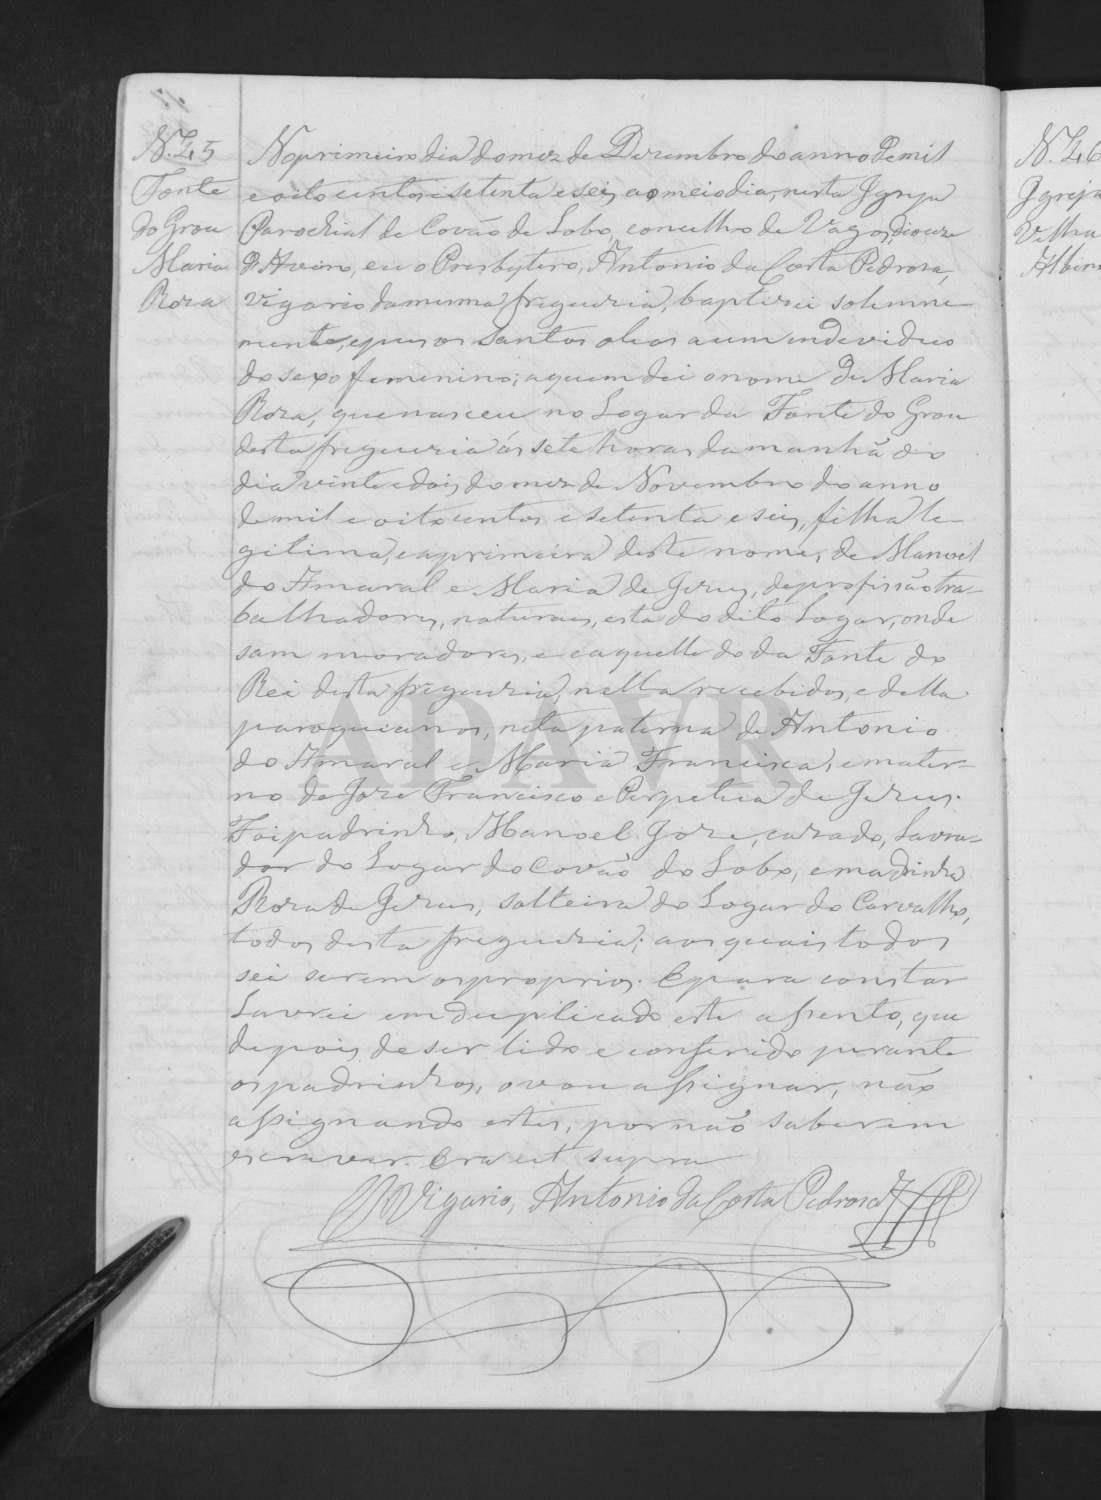 N. 45
Fonte
do Grou
Maria
Rosa
No primeiro dia do mez de Dezembro do anno de mil
e oito centos e setenta e seis, ao meio dia, nesta Igreja
Parochial de Covão de Lobo, concelho de Vagos, diocese
de Aveiro, eu o Presbytero, Antonio da Costa Pedrosa,
Vigario da mesma freguezia, baptisei solemne-
mente, e puz os Santos oleos a um individuo
do sexo femenino; a quem dei o nome de Maria
Roza, que nasceu no Logar da Fonte do Grou
desta freguezia ás sete horas da manhã do
dia vinte e dois do mez de Novembro do anno
de mil e oitocentos e setenta e seis, filha le-
gitima, e a primeira deste nome, de Manoel
do Amaral e Maria de Jezus, de profissão tra-
balhadores, naturaes, esta do dito Logar, onde
sam moradores, e e aquelle do da Fonte do
Rei desta freguezia, nella recebidos, e della
paroquianos, neta paterna de Antonio
do Amaral e Maria Francisca, e mater-
no de Joze Francisco e Perpetua de Jezus.
Foi padrinho, Manoel Joze, cazado, Lavra-
dor do Logar do Covão do Lobo, e madrinha
Roza de Jezus, solteira do Logar do Carvalho,
todos desta freguezia; aos quais todos
sei serem os proprios. E para constar
Lavrei em duplicado este assento, que
depois de ser lido e conferido perante
os padrinhos, o vou assignar, não
assignando estes, por não saberem
escrever. Era ut supra
O Vigario, Antonio da Costa Pedrosa
N. 46
Igreja
Velha
ADAVR